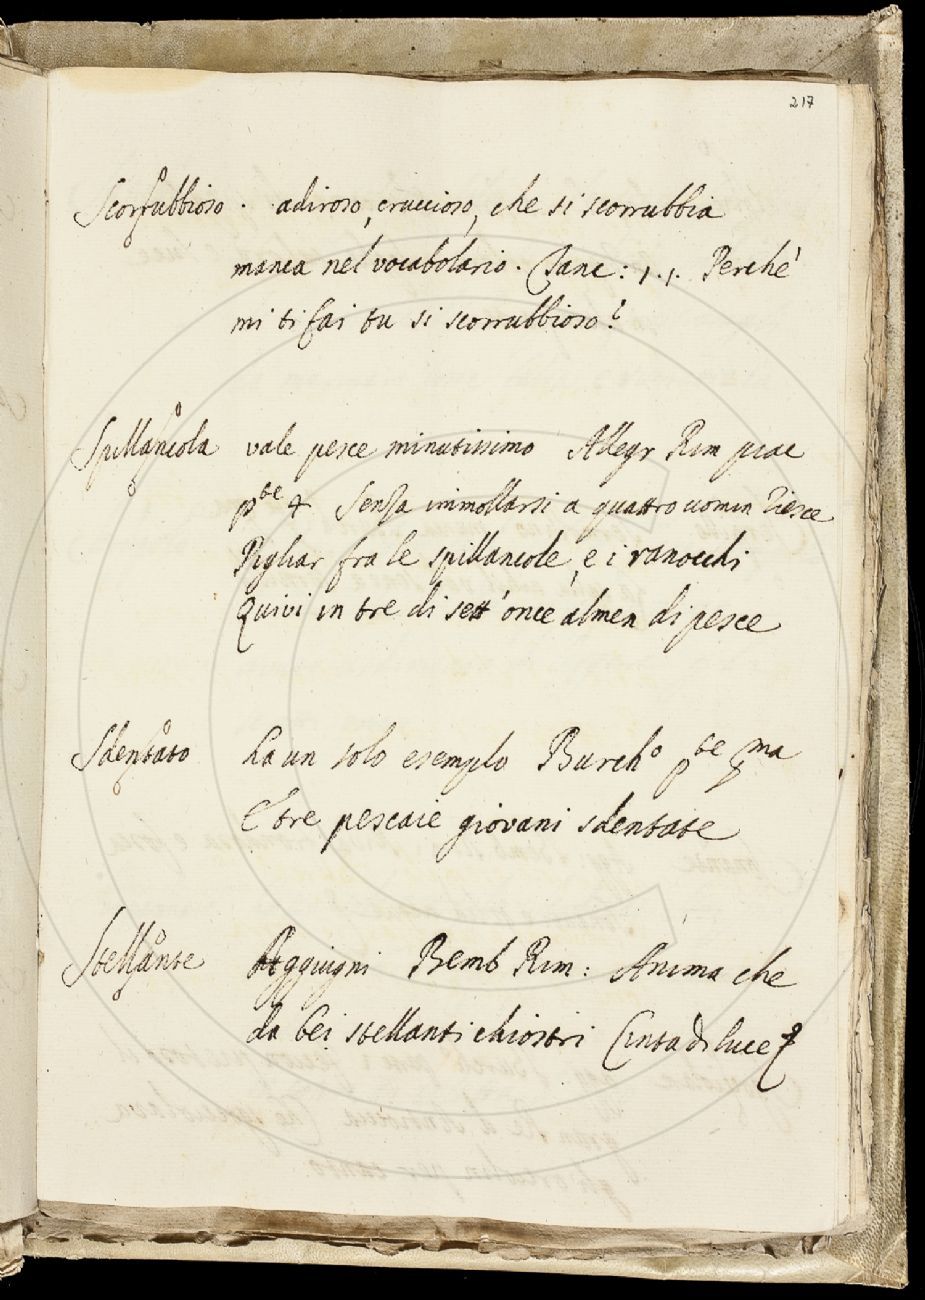 217
Scorrubbioso. adiroso, cruccioso, che si scorrubbia
manca nel vocabolario. Tanc: 1.1. Perchè
mi ti fai tu si scorrubbioso?
Spillancola vale pesce minutissimo Allegr Rim piac
pte 4 Senza immollarsi a quattro uomin riesce
Pigliar fra le spillancole, e i ranocchi
Quivi in tre di sett'once almen di pesce
Sdentato ha un solo esempio Burcho pte pma
E tre pescaie giovani sdentate
Stellante Aggiugni Bemb Rim: Anima che
da bei stellanti chiostri Cinta di luce